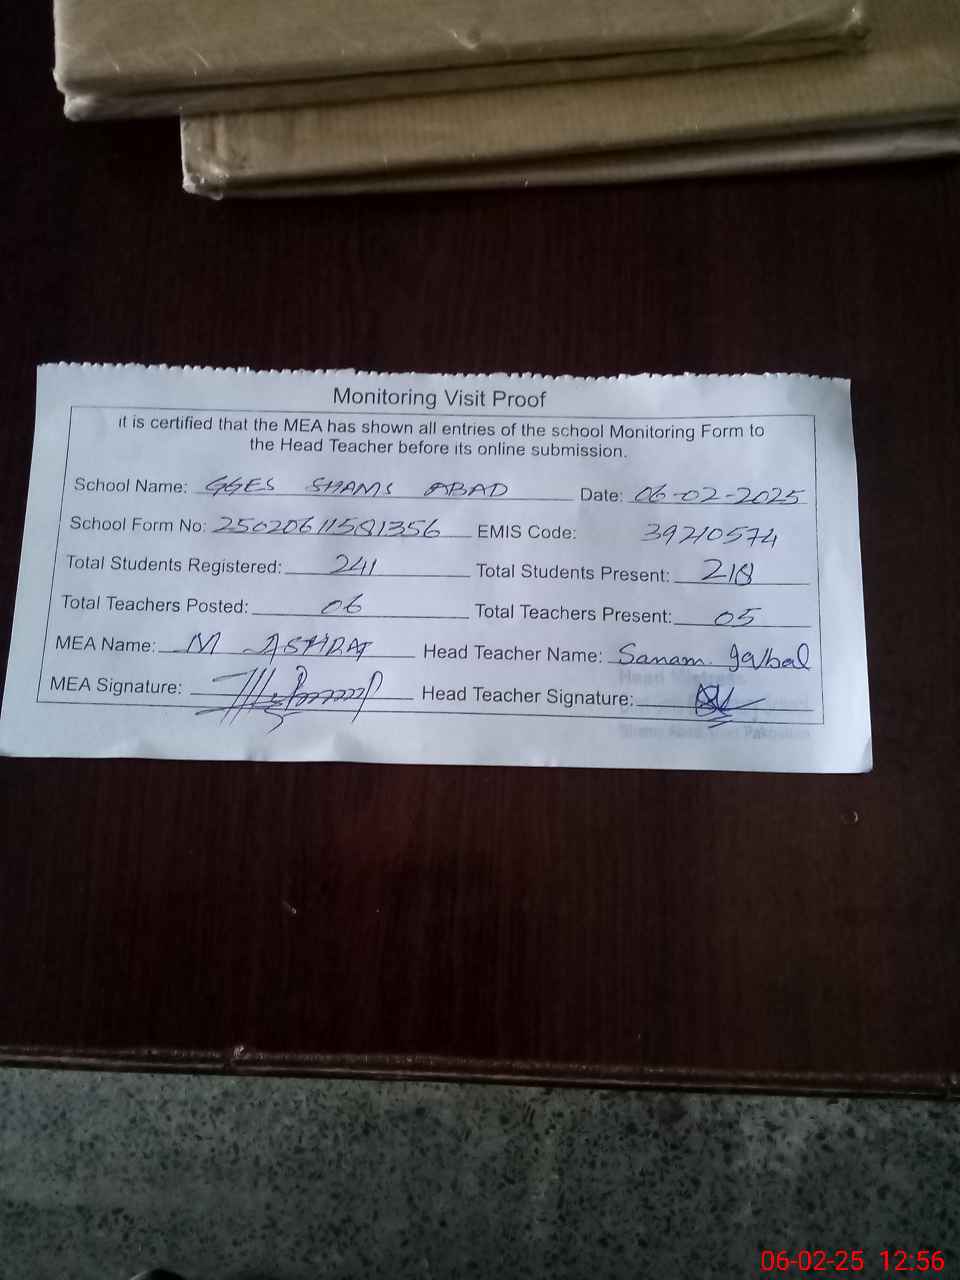 Monitoring Visit Proof
it is certified that the MEA has shown all entries of the school Monitoring Form to
the Head Teacher before its online submission.
School Name: GGES SHAMS ABAD Date: 06-02-2025
School Form No: 25020611581356 EMIS Code: 39210574
Total Students Registered: 241 Total Students Present: 218
Total Teachers Posted: 06 Total Teachers Present: 05
MEA Name: M ASHRAF Head Teacher Name: Sanam Iqbal
MEA Signature: Head Teacher Signature:
06-02-25 12:56